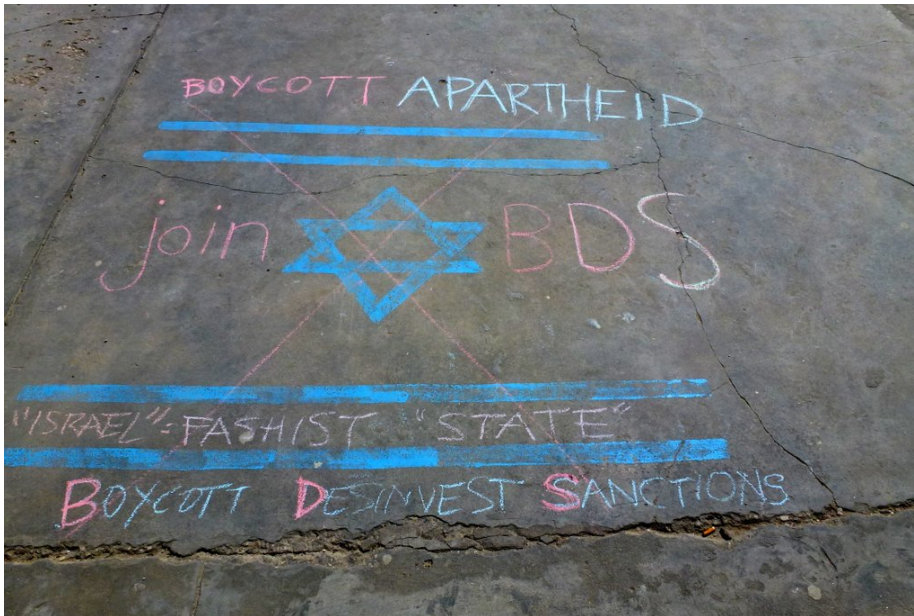 BOYCOTT APARTHEID
join BDS
"ISRAEL"-FASHIST "STATE"
BOYCOTT DESINVEST SANCTIONS